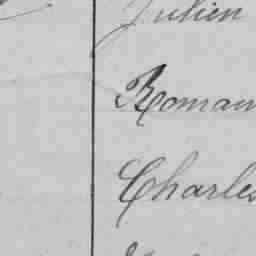 Julien
Romain
Charles